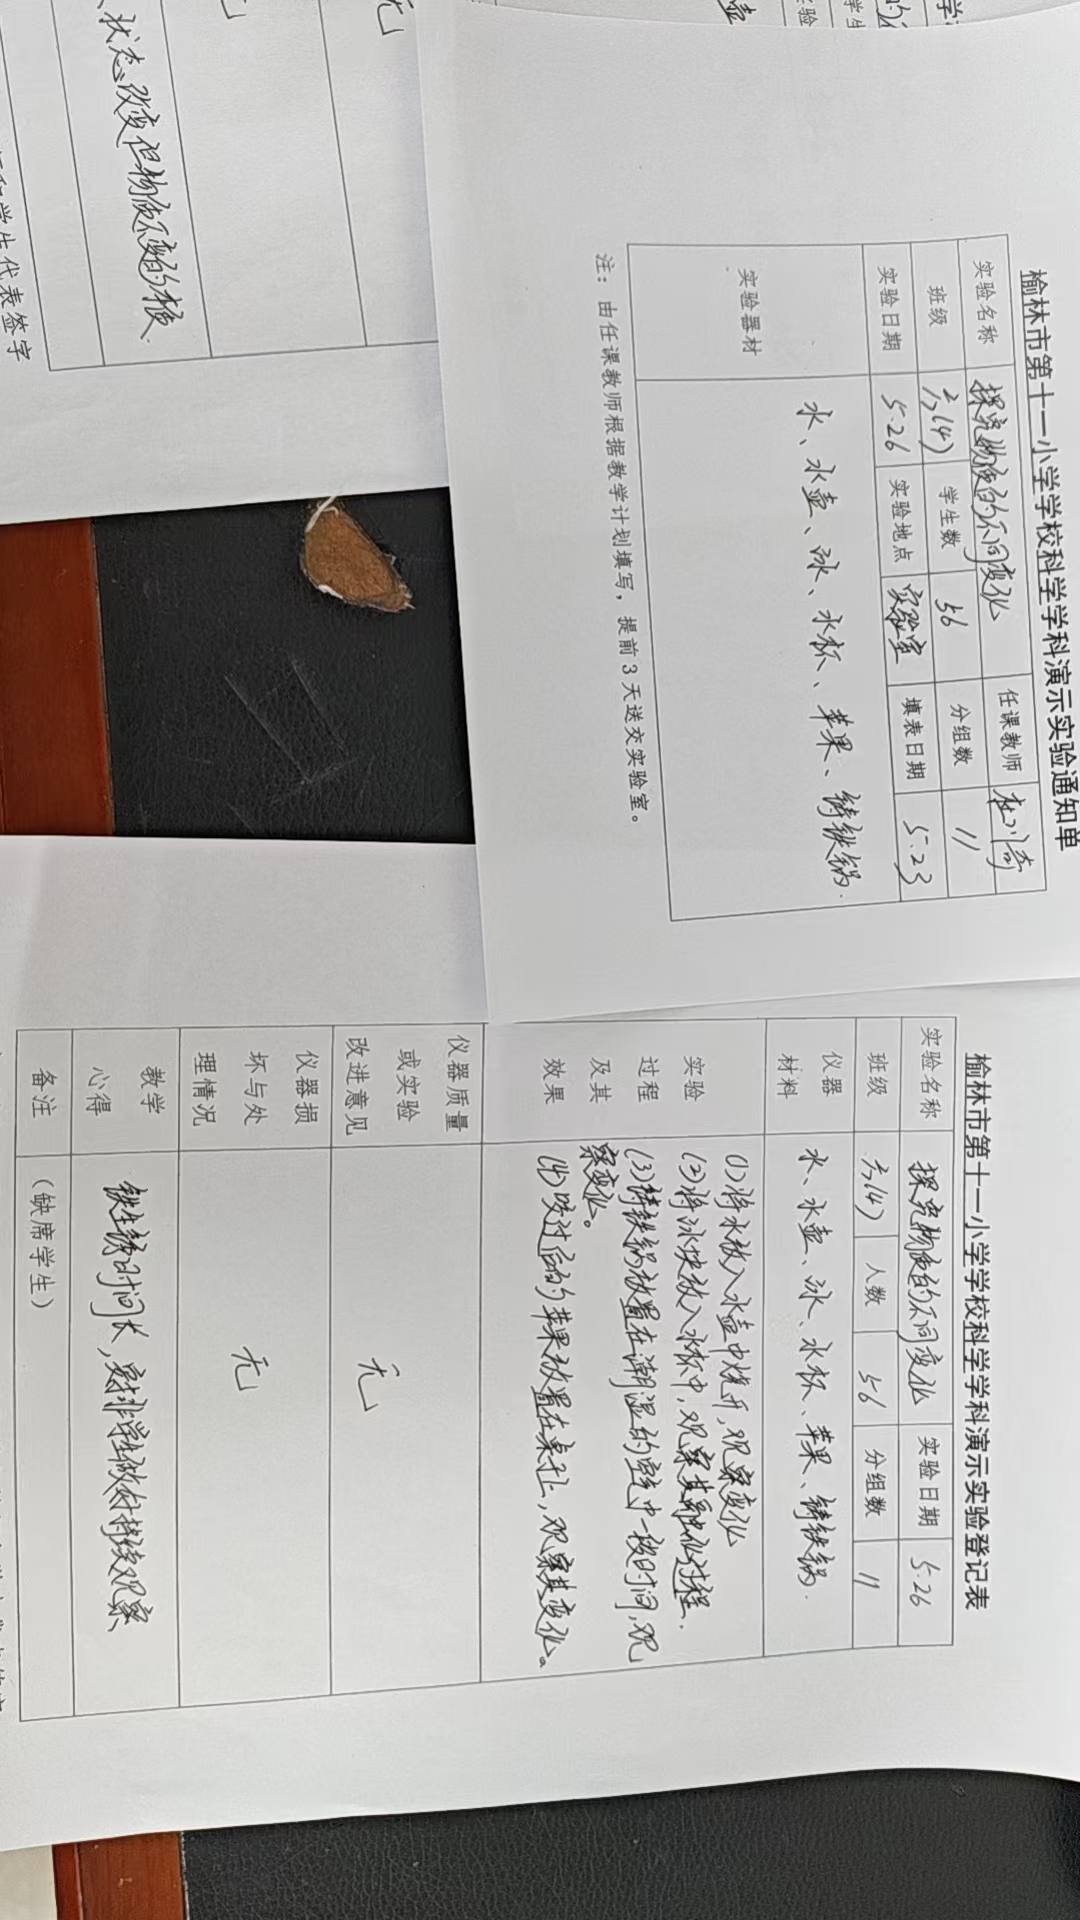 榆林市第十一小学学校科学学科演示实验通知单
实验名称 探究物质的不同变化 任课教师
班级 六(4) 学生数 56 分组数 11
实验日期 5.26 实验地点 实验室 填表日期 5.23
实验器材 水、水壶、冰、水杯、苹果、铸铁锅.
注：由任课教师根据教学计划填写，提前3天送交实验室。
榆林市第十一小学学校科学学科演示实验登记表
实验名称 探究物质的不同变化 实验日期 5.26
班级 六(4) 人数 56 分组数 11
仪器材料 水、水壶、冰、水杯、苹果、铸铁锅.
实验过程及其效果
(1)将水放入水壶中烧开,观察变化
(2)将冰块放入水杯中,观察其融化过程.
(3)铸铁锅放置在潮湿的空气中一段时间,观
察变化。
(4)咬过后的苹果放置在桌上,观察其变化。
仪器质量或实验改进意见 无
仪器损坏与处理情况 无
教学心得 铁生锈时间长,安排学生做好持续观察
备注 （缺席学生）
无
状态改变但物质不变的
学生代表签字